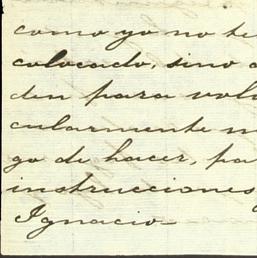 como yo no te
colocado, sino a
den para volv
cularmente m
go de hacer, pa
instrucciones
Ignacio